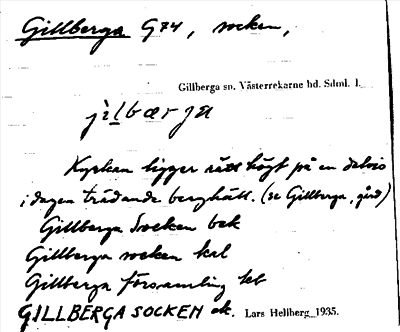 Gillberga G74, socken,
Gillberga sn. Västerrekarne hd. Sdml. 1.
jìlbærja
Kyrkan ligger rätt högt på en delvis
i dagen trädande berghäll. (se Gillberga, gård)
Gillberga Socken bek
Gillberga socken kal
Gillberga församling kb
GILLBERGA SOCKEN ek. Lars Hellberg 1935.